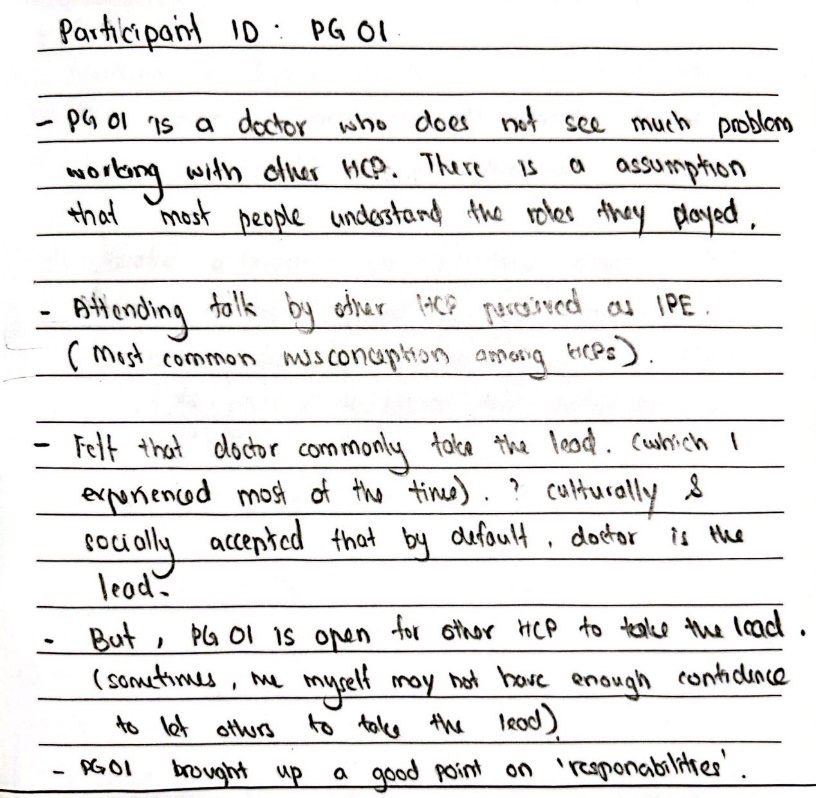 Participant ID : PG 01
- PG 01 is a doctor who does not see much problem
working with other HCP. There is a assumption
that most people understand the roles they played.
- Attending talk by other HCP perceived as IPE.
(Most common misconception among HCPs).
- Felt that doctor commonly take the lead. (which I
experienced most of the time). ? culturally &
socially accepted that by default, doctor is the
lead.
- But, PG 01 is open for other HCP to take the lead.
(sometimes, me myself may not have enough confidence
to let others to take the lead)
- PG01 brought up a good point on 'responabilities'.